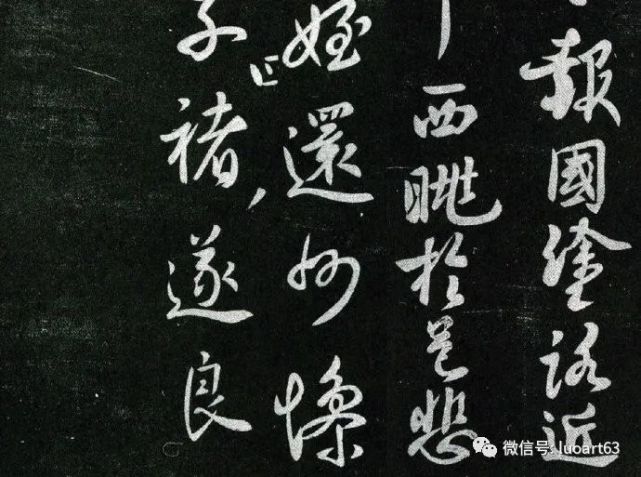 報國塗路近
西眺於邑悲
姪還州慘
子褚遂良
微信号: luoart63